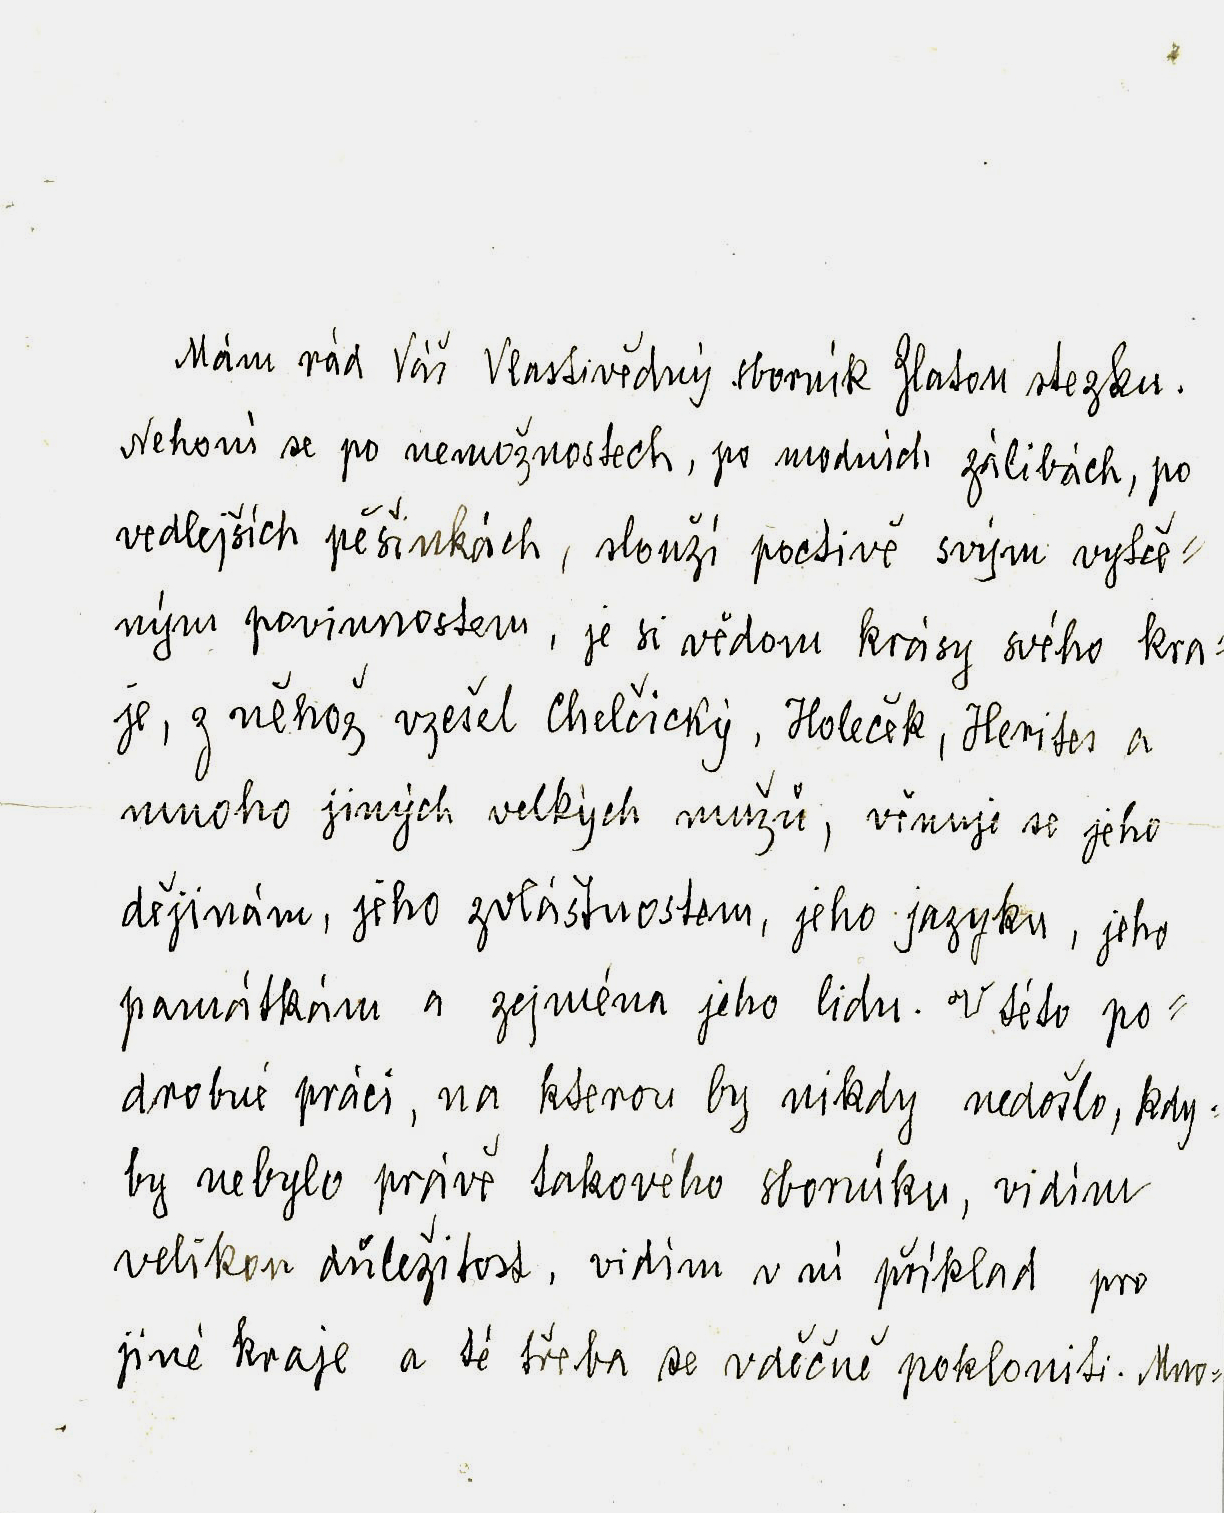 Mám rád Váš Vlastivědný sborník Zlatou stezku.
Nehoní se po nemožnostech, po modních zálibách, po
vedlejších pěšinkách, slouží poctivě svým vytče=
ným povinnostem, je si vědom krásy svého kra=
je, z něhož vzešel Chelčický, Holeček, Herites a
mnoho jiných velkých mužů, věnuje se jeho
dějinám, jeho zvláštnostem, jeho jazyku, jeho
památkám a zejména jeho lidu. V této po=
drobné práci, na kterou by nikdy nedošlo, kdy=
by nebylo právě takového sborníku, vidím
velikou důležitost, vidím v ní příklad pro
jiné kraje a té třeba se vděčně pokloniti. Mno=